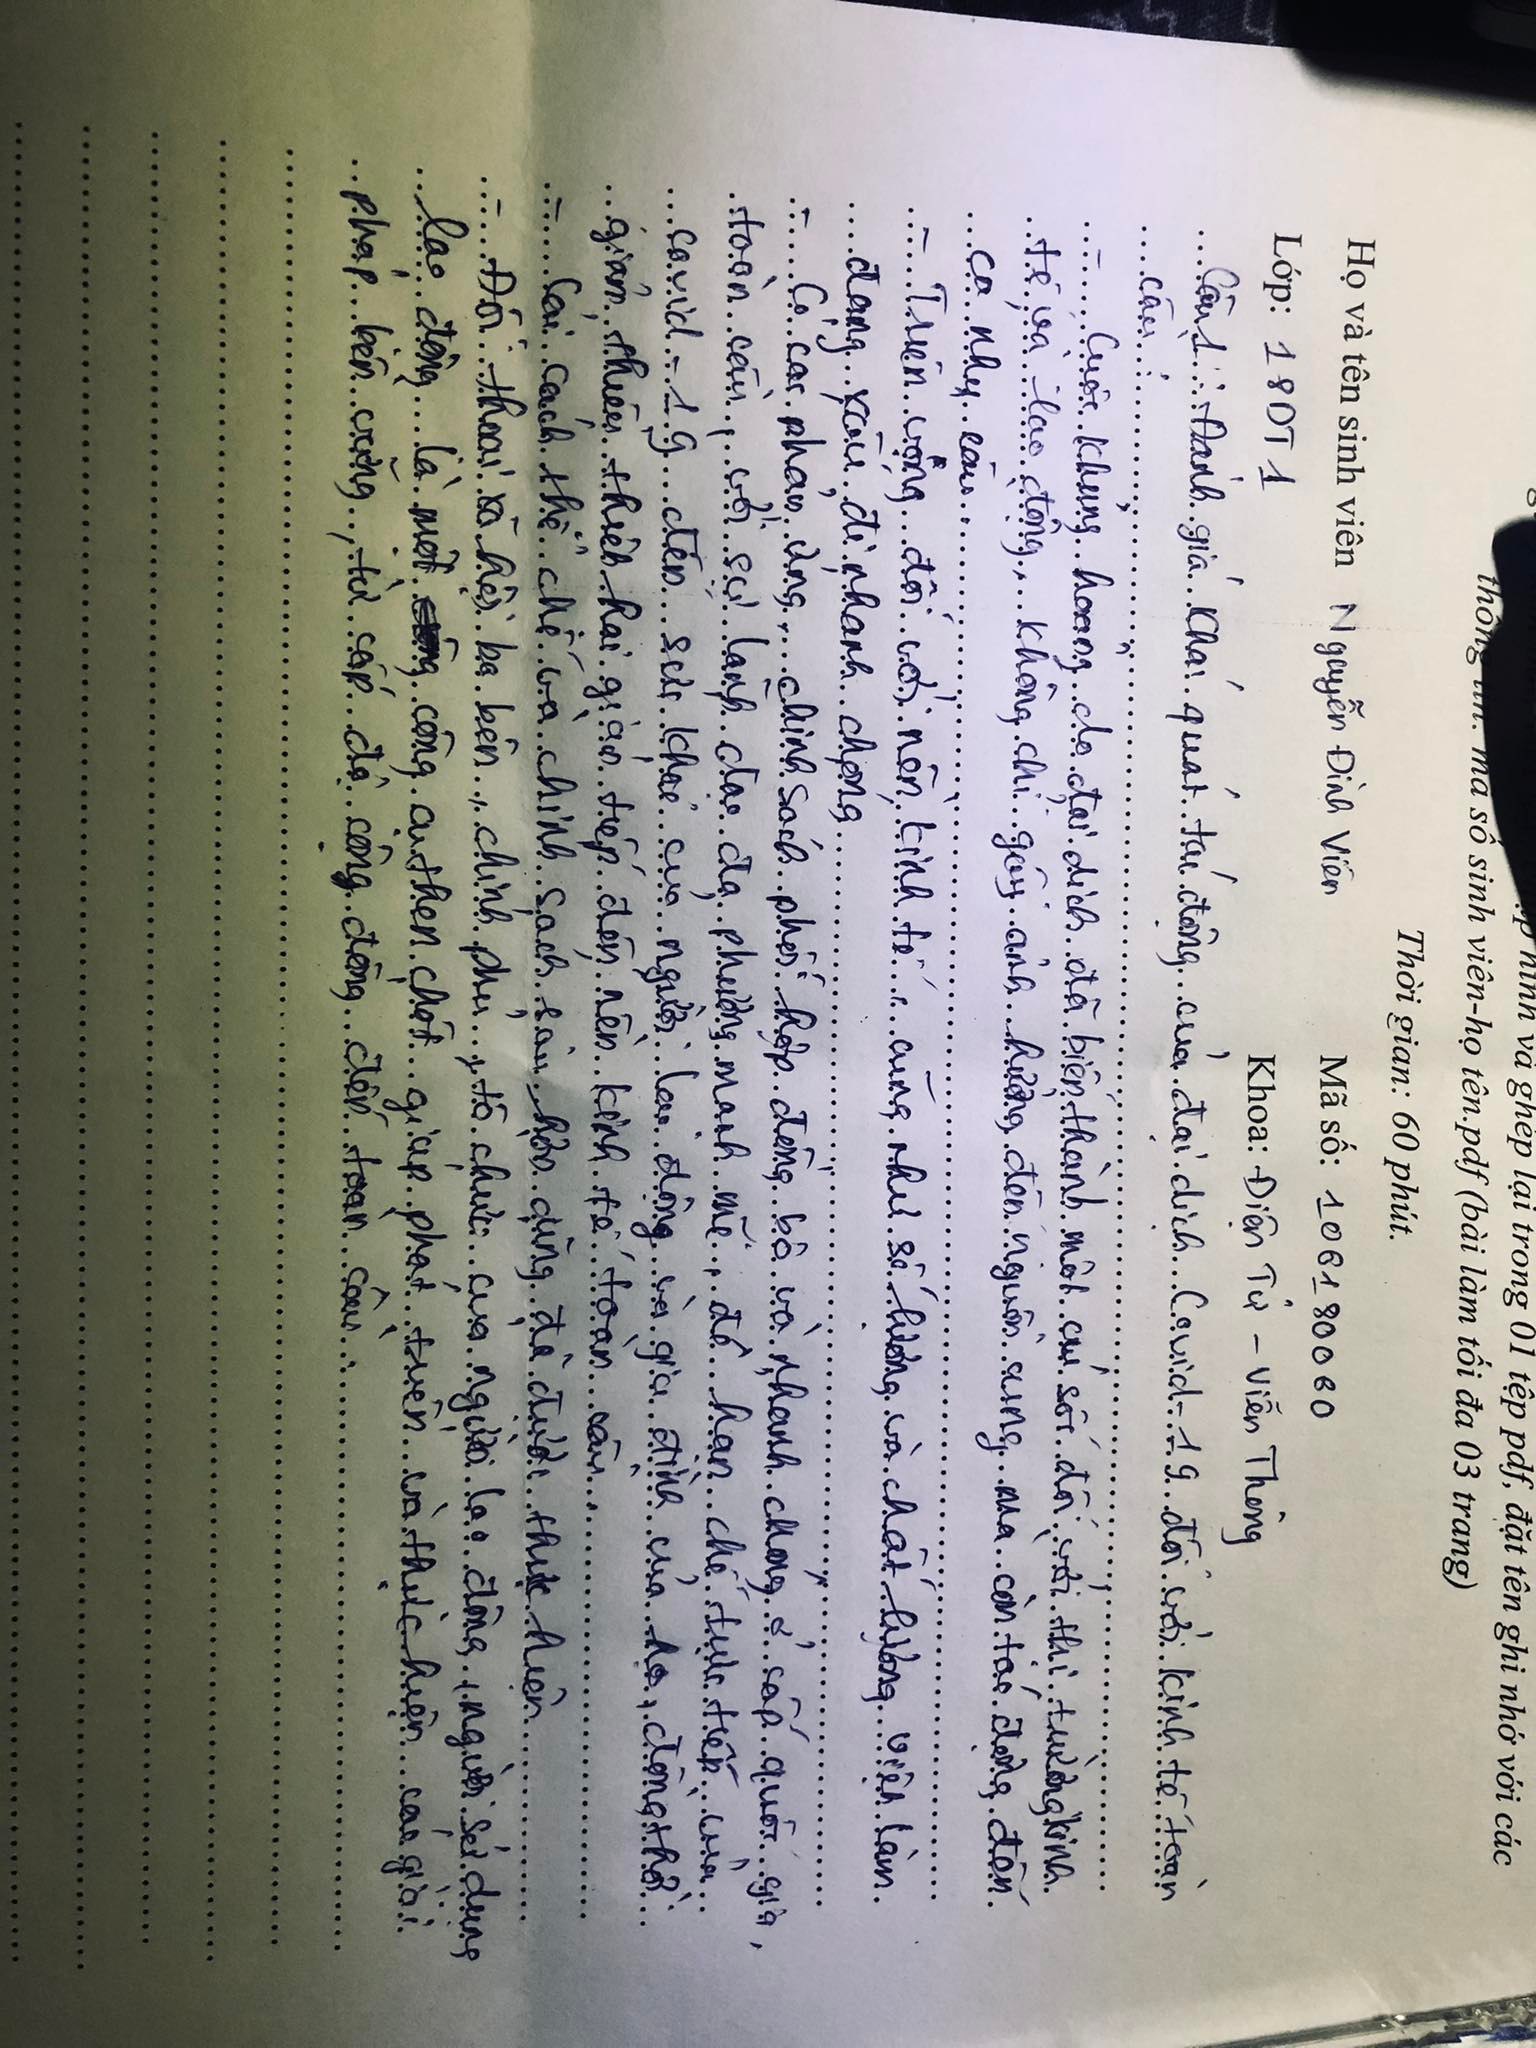 hình và ghép lại trong 01 tệp pdf, đặt tên ghi nhớ với các
thông tin: mã số sinh viên-họ tên.pdf (bài làm tối đa 03 trang)
Thời gian: 60 phút.
Họ và tên sinh viên Nguyễn Đình Viên Mã số: 106180060
Lớp: 18DT1 Khoa: Điện Tử - Viễn Thông
Câu 1: Đánh giá khái quát tác động của đại dịch Covid-19 đối với kinh tế toàn
cầu:
- Cuộc khủng hoảng do đại dịch đã biến thành một cú sốc đối với thị trường kinh
tế và lao động, không chỉ gây ảnh hưởng đến nguồn cung mà còn tác động đến
cả nhu cầu.
- Triển vọng đối với nền kinh tế, cũng như số lượng và chất lượng việc làm
đang xấu đi nhanh chóng
- Có các phản ứng, chính sách phối hợp đồng bộ và nhanh chóng ở cấp quốc gia,
toàn cầu, với sự lãnh đạo đa phương mạnh mẽ, để hạn chế trực tiếp của
covid-19 đến sức khoẻ của người lao động và gia đình của họ, đồng thời
giảm thiểu thiệt hại gián tiếp đến nền kinh tế toàn cầu.
- Cải cách thể chế và chính sách sâu hơn cũng đã được thực hiện
- Đối thoại xã hội ba bên, chính phủ, tổ chức của người lao động, người sử dụng
lao động là một công cụ then chốt giúp phát triển và thực hiện các giải
pháp bền vững, từ cấp độ cộng đồng đến toàn cầu.